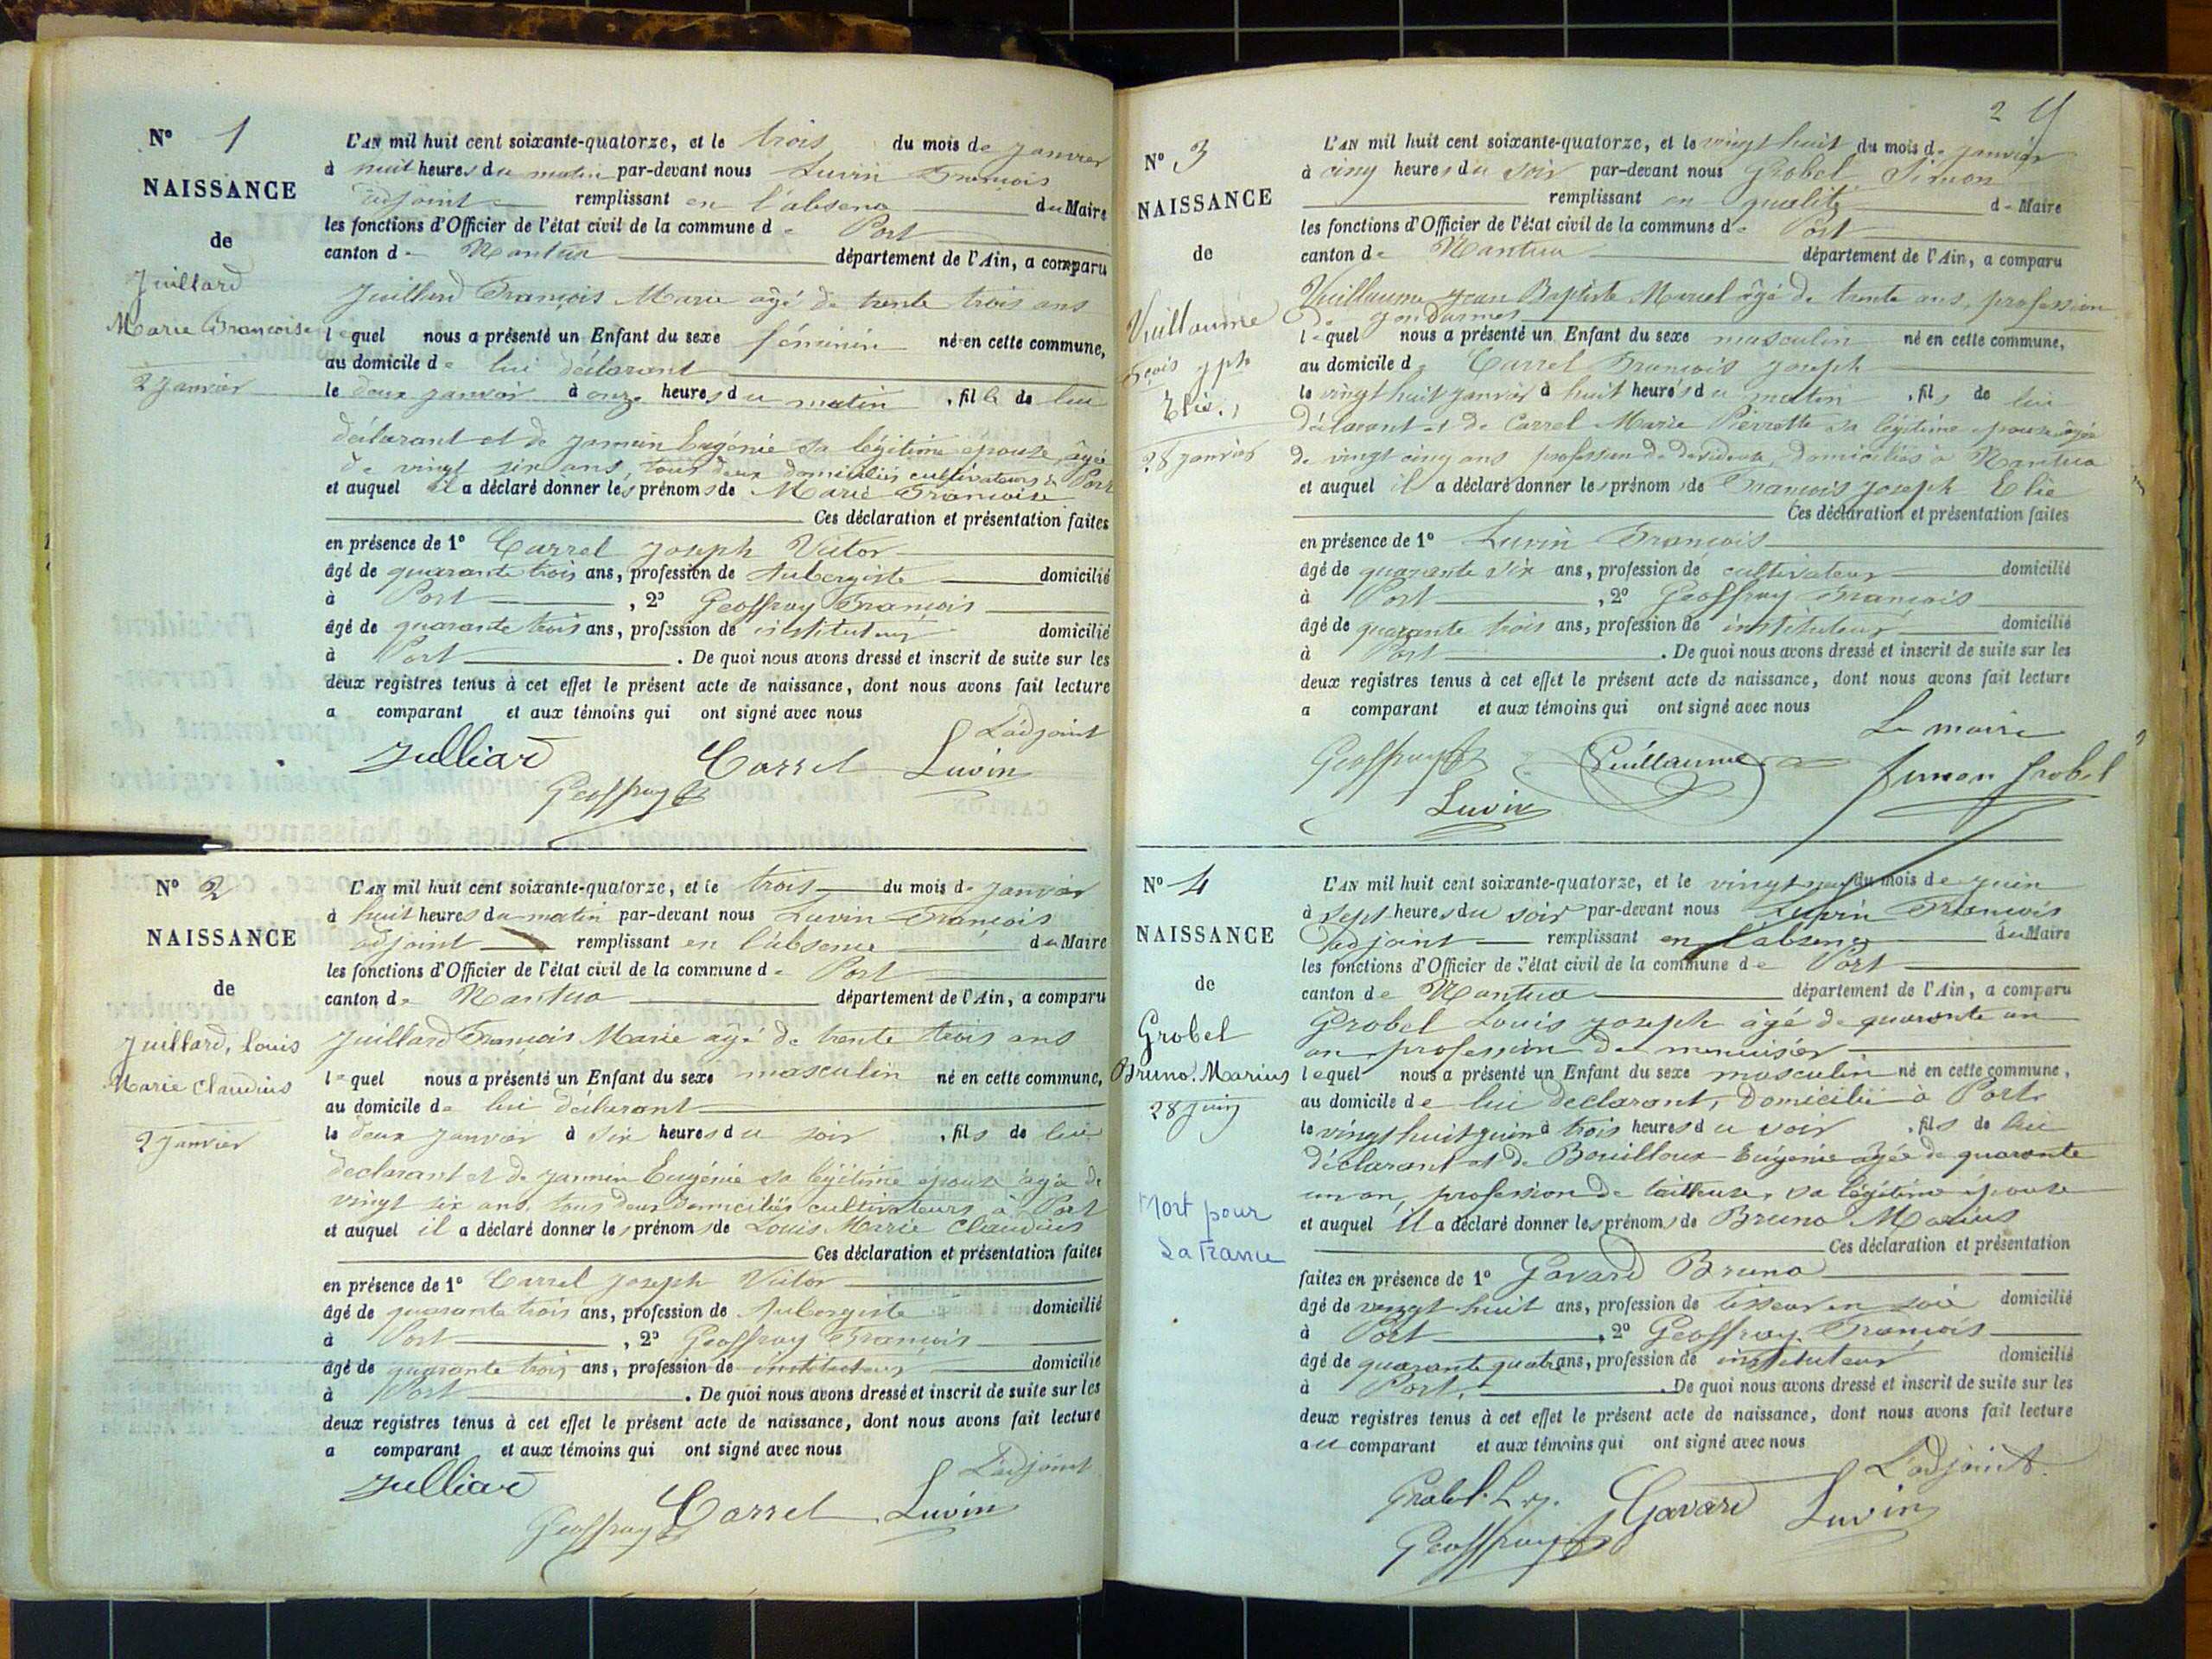 N° 1
NAISSANCE
de
Juillard
Marie Françoise
2 Janvier
L'AN mil huit cent soixante-quatorze, et le trois du mois de janvier
à huit heures du matin par-devant nous Luvin François
adjoint remplissant en l'absence du Maire
les fonctions d'Officier de l'état civil de la commune de Port
canton de Nantua département de l'Ain, a comparu
Juillard François Marie âgé de trente trois ans
lequel nous a présenté un Enfant du sexe féminin né en cette commune,
au domicile de lui déclarant
le deux janvier à onze heures du matin, fille de lui
déclarant et de Jannin Eugénie sa légitime épouse âgée
de vingt six ans, tous deux domiciliés cultivateurs à Port
et auquel il a déclaré donner les prénoms de Marie Françoise
Ces déclaration et présentation faites
en présence de 1° Carrel Joseph Victor
âgé de quarante trois ans, profession de Aubergiste domicilié
à Port, 2° Geoffray François
âgé de quarante trois ans, profession de instituteur domicilié
à Port. De quoi nous avons dressé et inscrit de suite sur les
deux registres tenus à cet effet le présent acte de naissance, dont nous avons fait lecture
a comparant et aux témoins qui ont signé avec nous
L'adjoint
Julliard Carrel Luvin
Geoffray
N° 2
NAISSANCE
de
Juillard, Louis
Marie Claudius
2 Janvier
L'AN mil huit cent soixante-quatorze, et le trois du mois de janvier
à huit heures du matin par-devant nous Luvin François
adjoint remplissant en l'absence du Maire
les fonctions d'Officier de l'état civil de la commune de Port
canton de Nantua département de l'Ain, a comparu
Juillard François Marie âgé de trente trois ans
lequel nous a présenté un Enfant du sexe masculin né en cette commune,
au domicile de lui déclarant
le deux janvier à six heures du soir, fils de lui
declarant et de Jannin Eugénie sa légitime épouse âgée de
vingt six ans, tous deux domiciliés cultivateurs à Port
et auquel il a déclaré donner les prénoms de Louis Marie Claudius
Ces déclaration et présentation faites
en présence de 1° Carrel Joseph Victor
âgé de quarante trois ans, profession de Aubergiste domicilié
à Port, 2° Geoffray François
âgé de quarante trois ans, profession de instituteur domicilié
à Port. De quoi nous avons dressé et inscrit de suite sur les
deux registres tenus à cet effet le présent acte de naissance, dont nous avons fait lecture
a comparant et aux témoins qui ont signé avec nous
L'adjoint
Julliard Carrel Luvin
Geoffray
2
N° 3
NAISSANCE
de
Vuillaume
Fçois Jph
Elie
28 janvier
L'AN mil huit cent soixante-quatorze, et le vingt huit du mois de janvier
à cinq heures du soir par-devant nous Grobel Simon
remplissant en qualité de Maire
les fonctions d'Officier de l'état civil de la commune de Port
canton de Nantua département de l'Ain, a comparu
Vuillaume Jean Baptiste Marcel âgé de trente ans, profession
de gendarmes
lequel nous a présenté un Enfant du sexe masculin né en cette commune,
au domicile de Carrel François Joseph
le vingt huit janvier à huit heures du matin, fils de lui
déclarant et de Carrel Marie Pierrette sa légitime épouse âgée
de vingt cinq ans profession de domiciliés à Nantua
et auquel il a déclaré donner les prénoms de François Joseph Elie
Ces déclaration et présentation faites
en présence de 1° Luvin François
âgé de quarante six ans, profession de cultivateur domicilié
à Port, 2° Geoffray François
âgé de quarante trois ans, profession de instituteur domicilié
à Port. De quoi nous avons dressé et inscrit de suite sur les
deux registres tenus à cet effet le présent acte de naissance, dont nous avons fait lecture
a comparant et aux témoins qui ont signé avec nous
Le maire
Geoffray Vuillaume Simon Grobel
Luvin
N° 4
NAISSANCE
de
Grobel
Bruno. Marius
28 Juin
Mort pour
La France
L'AN mil huit cent soixante-quatorze, et le vingt neuf du mois de juin
à sept heures du soir par-devant nous Luvin François
adjoint remplissant en l'absence du Maire
les fonctions d'Officier de l'état civil de la commune de Port
canton de Nantua département de l'Ain, a comparu
Grobel Louis Joseph âgé de quarante un
an, profession de menuisier
lequel nous a présenté un Enfant du sexe masculin né en cette commune,
au domicile de lui declarant, domicilié à Port
le vingt huit juin à trois heures du soir, fils de lui
déclarant et de Bouilloux Eugénie âgée de quarante
un an, profession de tailleuse, sa légitime épouse
et auquel il a déclaré donner les prénoms de Bruno Marius
Ces déclaration et présentation
faites en présence de 1° Gavard Bruno
âgé de vingt huit ans, profession de tisseur en soie domicilié
à Port, 2° Geoffray François
âgé de quarante quatre ans, profession de instituteur domicilié
à Port. De quoi nous avons dressé et inscrit de suite sur les
deux registres tenus à cet effet le présent acte de naissance, dont nous avons fait lecture
au comparant et aux témoins qui ont signé avec nous
L'adjoint
Grobel Gavard Luvin
Geoffray